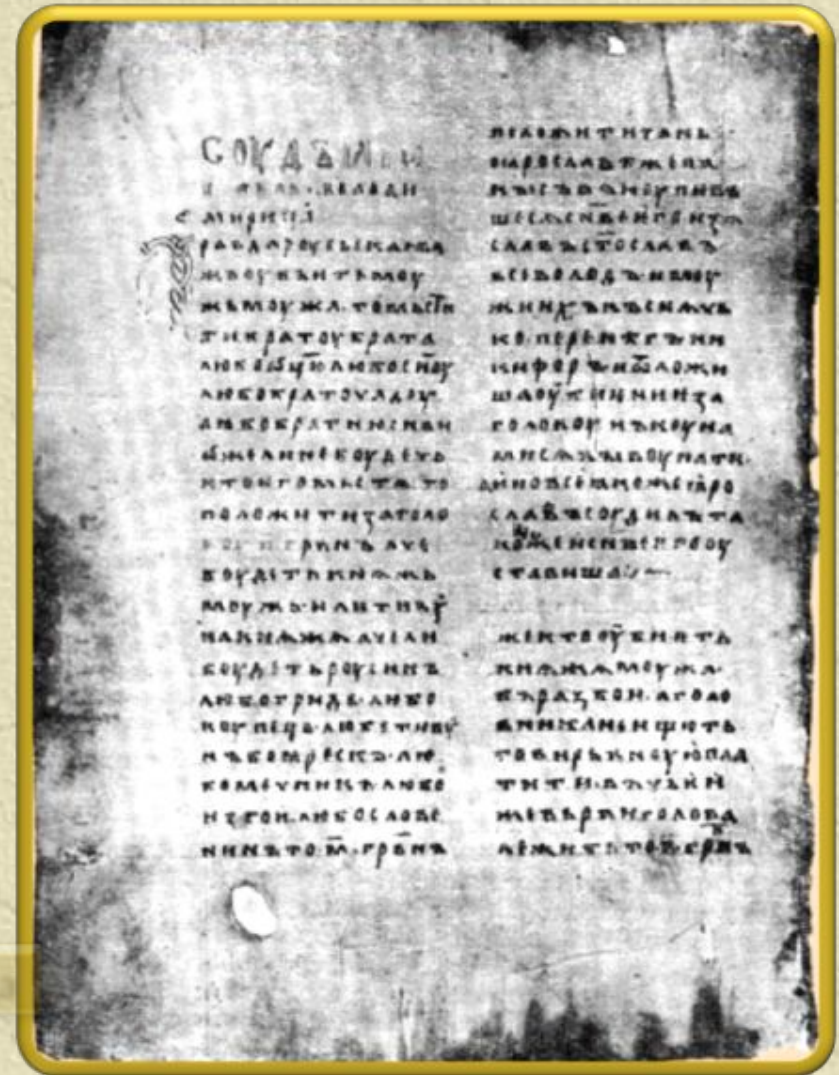 СОУДЪ
володи
мирица
равдароусьскаꙗ
жьоубьѥтьмоу
жьмоужа·томьсти
тибратоубрата
любоѡц҃ю·любосн҃оу
любобратоучадоу
любобратнюсн҃ви
ѡжелиневоудеть
ктоѥгомьстѧ·то
положитизаголо
боудетькнѧжь
моужь·илитиоу
накнѧжѧ·ачели
боудетьроусинъ
любогридь·любо
коупець·люботивоу
нъбоѧрескъ·лю
бомечникълюбо
изгои·любословѣ
нинъто·м҃·грв҃нъ
положитизань
поꙗрославѣжепа
кысъвъкоупивъ
шесѧсн҃веѥгоизѧ
славъст҃ославъ
всѣволодъ·имоу
жиихъкъснѧчь
ко·перенѣгъни
кифоръиѿложи
шаоубиѥниѥза
головоунъкоуна
мисѧвыкоупати·
аиновсеꙗкожеꙗро
славъсоудилъта
кожеисн҃веѥгооу
ставиша
жектооубиѥть
кнѧжѧмоужа·
въразбои·аголо
вникаѥищють
товирьвноуюпла
тити·въчьѥи
жевьрвиголова
лежитьто·п҃·грв҃нъ